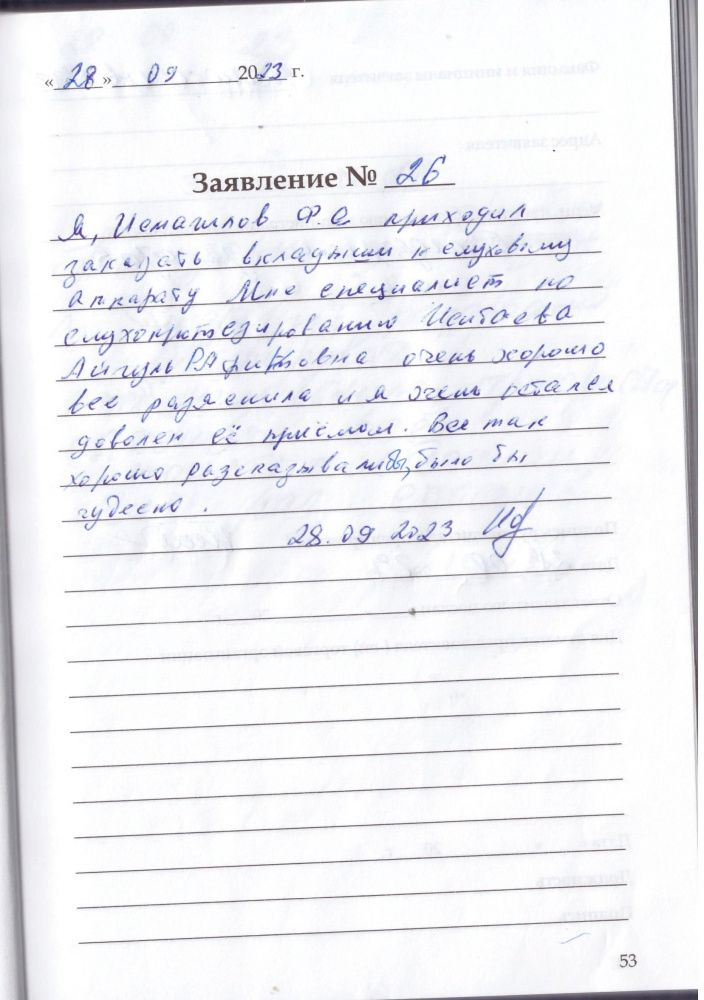 « 28 » 09 2023 г.
Заявление № 26
Я, Исмагилов Ф.С. приходил
заказать вкладыши к слуховому
аппарату Мне специалист по
слухопротезированию Иситаева
Айгуль Рафиковна очень хорошо
все разяснила и я очень остался
доволен её приёмом. Все так
хорошо рассказывали бы, было бы
чудесно.
28.09 2023
53